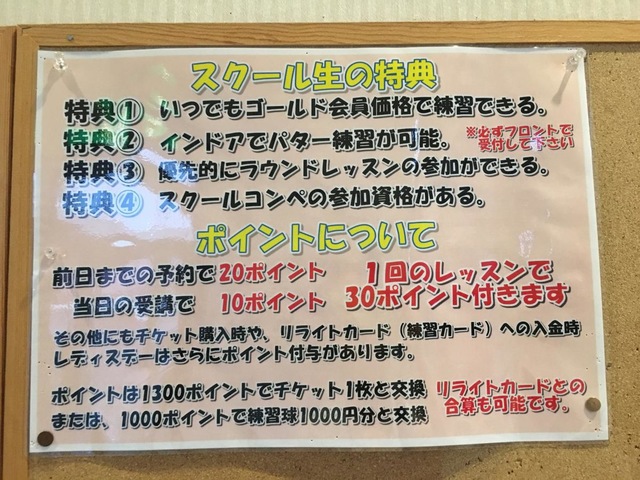 スクール生の特典
特典① いつでもゴールド会員価格で練習できる。
特典② インドアでパター練習が可能。 ※必ずフロントで
受付して下さい
特典③ 優先的にラウンドレッスンの参加ができる。
特典④ スクールコンペの参加資格がある。
ポイントについて
前日までの予約で20ポイント
当日の受講で 10ポイント
1回のレッスンで
30ポイント付きます
その他にもチケット購入時や、リライトカード（練習カード）への入金時
レディスデーはさらにポイント付与があります。
ポイントは1300ポイントでチケット1枚と交換
または、1000ポイントで練習球1000円分と交換
リライトカードとの
合算も可能です。